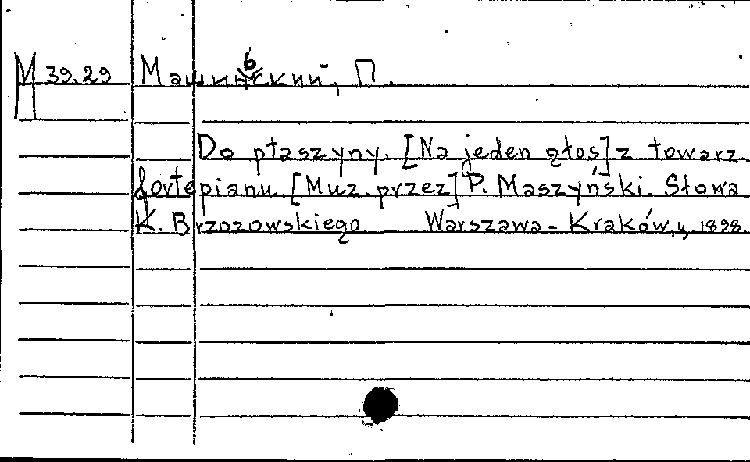 М 39.29 Машиньский, П.
Do ptaszyny. [Na jeden głos] z towarz.
fortepianu. [Muz. przez] P. Maszyński. Słowa
K. Brzozowskiego Warszawa - Kraków, 1898.